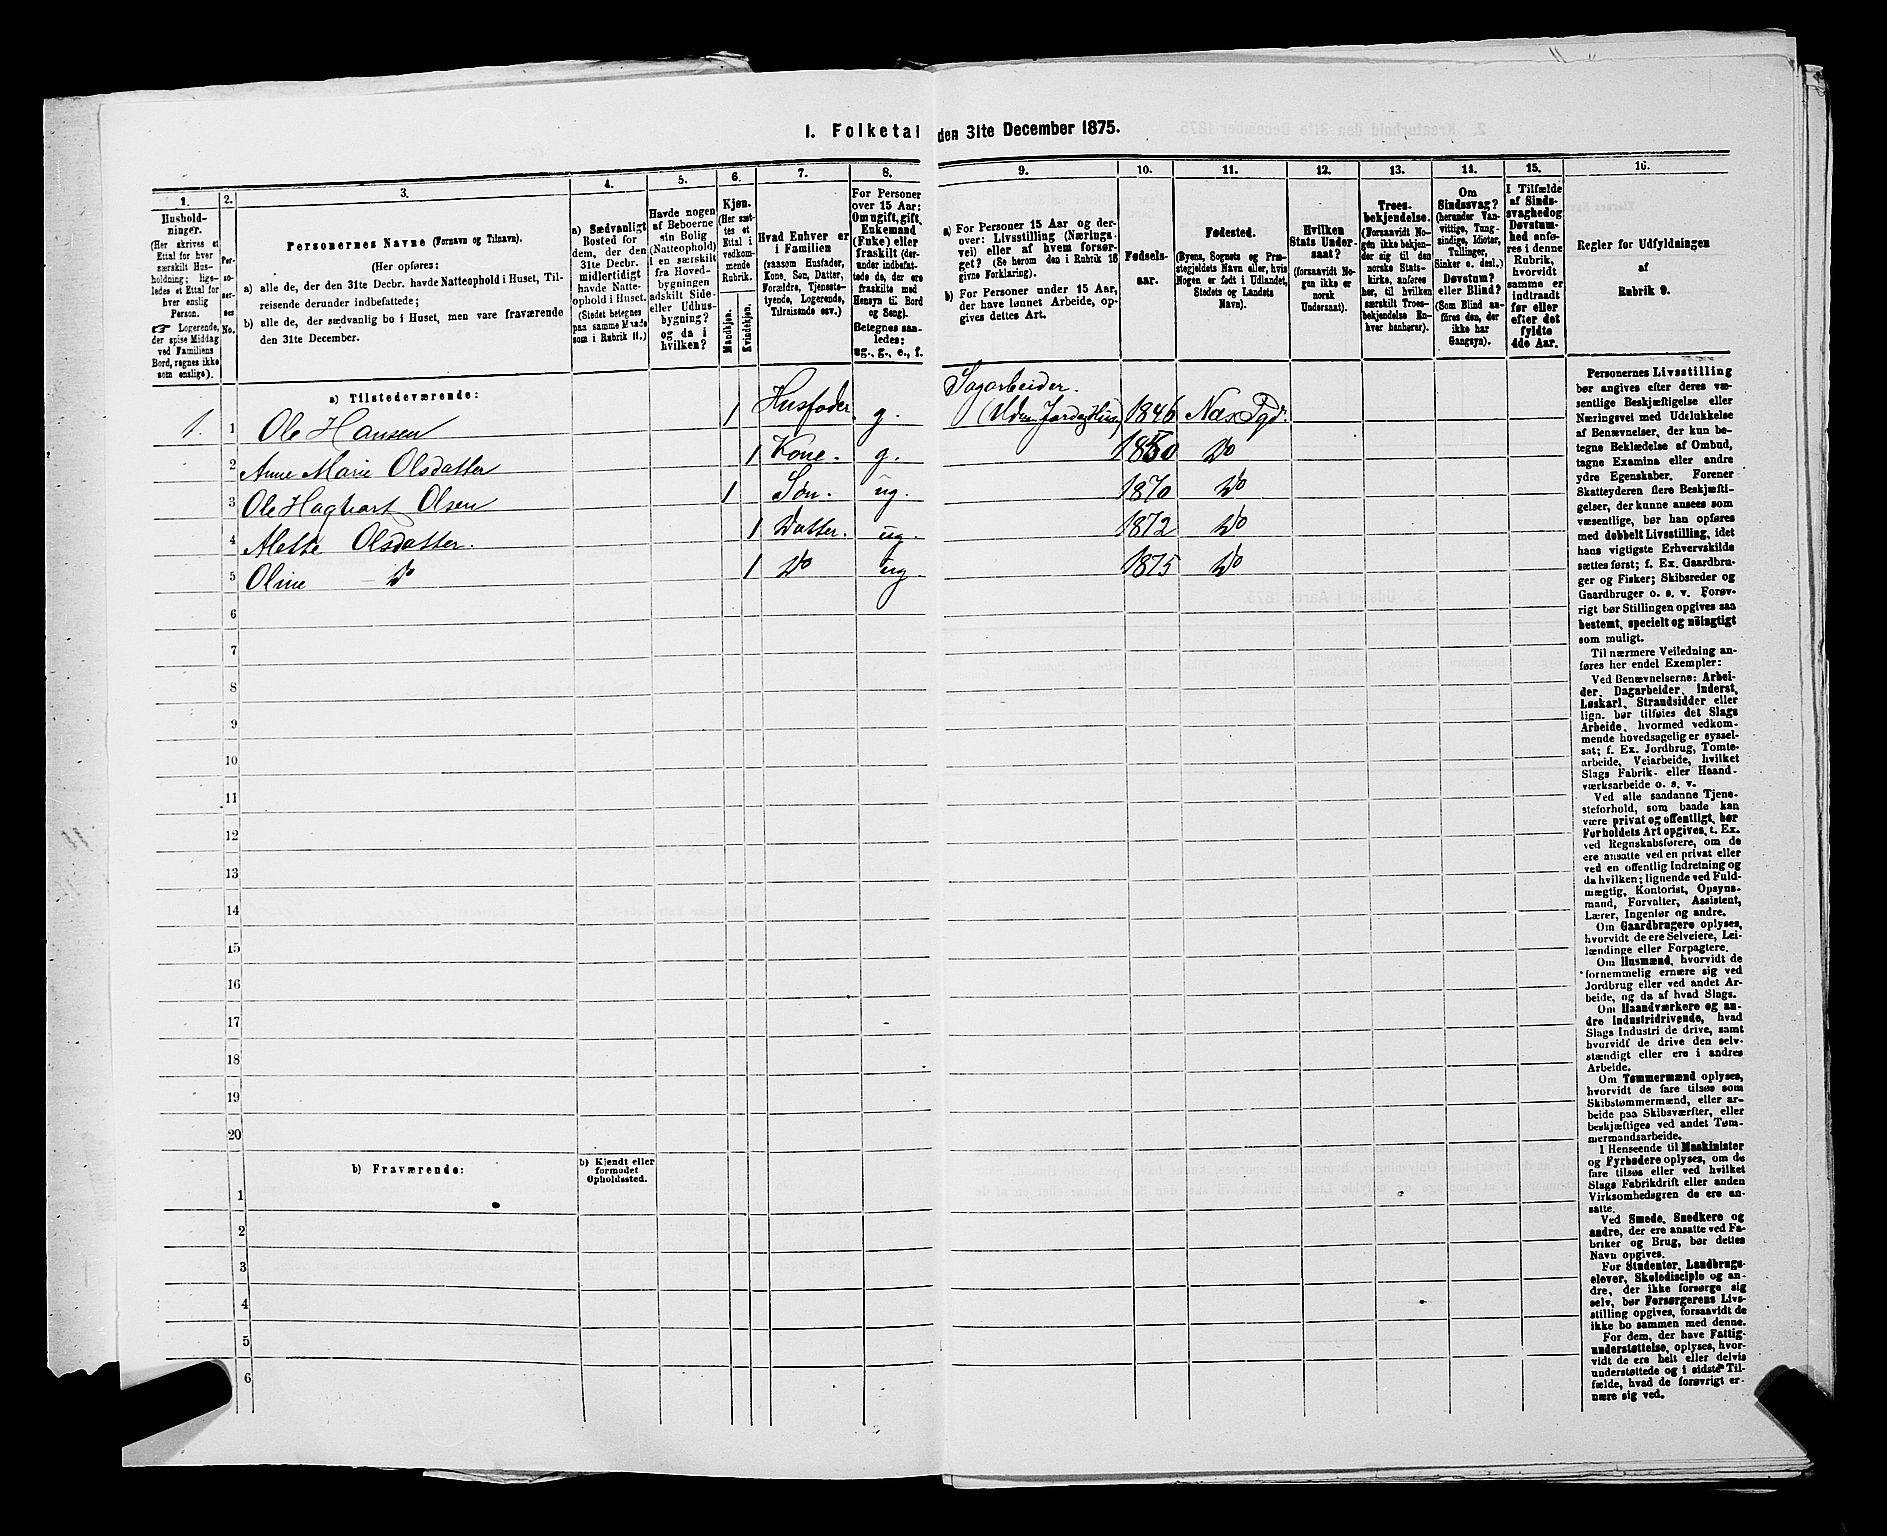 I. Folketal den 31te December 1875.
1.
Husholdninger.
(Her skrives et Ettal for hver særskilt Husholdning; ligeledes et Ettal for hver enslig Person.
☞ Logerende, der spise Middag ved Familiens Bord, regnes ikke som enslige).
2.
Personernes No.
3.
Personernes Navne (Fornavn og Tilnavn).
(Her opføres:
a) alle de, der den 31te Decbr. havde Natteophold i Huset, Tilreisende derunder indbefattede;
b) alle de, der sædvanlig bo i Huset, men vare fraværende den 31te December.
4.
a) Sædvanligt Bosted for dem, der den 31te Decbr. midlertidigt havde Natteophold i Huset. (Stedet betegnes paa samme Maade som i Rubrik 11.)
5.
Havde nogen af Beboerne sin Bolig (Natteophold) i en særskilt fra Hovedbygningen adskilt Side- eller Udhusbygning? og da i hvilken?
6.
Kjøn.
(Her sættes et Ettal i vedkommende Rubrik.
Mandkjøn.
Kvindekjøn.
7.
Hvad Enhver er i Familien
(saasom Husfader, Kone, Søn, Datter, Forældre, Tjenestetyende, Logerende, Tilreisende osv.)
8.
For Personer over 15 Aar: Om ugift, gift, Enkemand (Enke) eller fraskilt (derunder indbefattede de, der ere fraskilte med Hensyn til Bord og Seng).
Betegnes saaledes: ug., g., e., f.
9.
a) For Personer 15 Aar og derover: Livsstilling (Næringsvei) eller af hvem forsørget? (Se herom den i Rubrik 16 givne Forklaring).
b) For Personer under 15 Aar, der have lønnet Arbeide, opgives dettes Art.
10.
Fødselsaar.
11.
Fødested.
(Byens, Sognets og Præstegjeldets Navn eller, hvis Nogen er født i Udlandet, Stedets og Landets Navn).
12.
Hvilken Stats Undersaat?
(forsaavidt Nogen ikke er norsk Undersaat).
13.
Troesbekjendelse.
(Forsaavidt Nogen ikke bekjender sig til den norske Statskirke, anføres her, til hvilken særskilt Troesbekjendelse Enhver henhører).
14.
Om Sindssvag? (herunder Vanvittige, Tungsindige, Idioter, Tullinger, Sinker o. desl.) Døvstum? eller Blind? (Som Blind anføres den, der ikke har Gangsyn).
15.
I Tilfælde af Sindssvaghed og Døvstumhed anføres i denne Rubrik, hvorvidt samme er indtraadt før eller efter det fyldte 4de Aar.
16.
Regler for Udfyldningen af Rubrik 9.
a) Tilstedeværende:
1. 1 Ole Hansen 1 Husfader g. Sagarbeider. (Uden Jord og Huus) 1846 Næs Pgd.
2 Anne Marie Olsdatter 1 Kone. g. 1850 Do
3 Ole Hagbart Olsen 1 Søn. ug. 1870 Do
4 Mette Olsdatter. 1 Datter. ug. 1872 Do
5 Oline Do 1 Do ug. 1875 Do
6
7
8
9
10
11
12
13
14
15
16
17
18
19
20
b) Fraværende:
b) Kjendt eller formodet Opholdssted.
1
2
3
4
5
6
Personernes Livsstilling
bør angives efter deres væ-
sentlige Beskjæftigelse eller
Næringsvei med Udelukkelse
af Benævnelser, der kun be-
tegne Beklædelse af Ombud,
tagne Examina eller andre
ydre Egenskaber. Forener
Skatteyderen flere Beskjæfti-
gelser, der kunne ansees som
væsentlige, bør han opføres
med dobbelt Livsstilling, idet
hans vigtigste Erhvervskilde
sættes først; f. Ex. Gaardbru-
ger og Fisker; Skibsreder og
Gaardbruger o. s. v. Forøv-
rigt bør Stillingen opgives saa
bestemt, specielt og nøiagtigt
som muligt.
Til nærmere Veiledning an-
føres her endel Exempler:
Ved Benævnelserne: Arbei-
der, Dagarbeider, Inderst,
Løskarl, Strandsidder eller
lign. bør tilføies det Slags
Arbeide, hvormed vedkom-
mende hovedsagelig er syssel-
sat; f. Ex. Jordbrug, Tomte-
arbeide, Veiarbeide, hvilket
Slags Fabrik- eller Haand-
værksarbeide o. s. v.
Ved alle saadanne Tjene-
steforhold, som baade kan
være privat og offentligt, bør
Forholdets Art opgives, t. Ex.
ved Regnskabsførere, om de
ere ansatte ved en privat eller
ved en offentlig Indretning og
da hvilken; lignende ved Fuld-
mægtig, Kontorist, Opsyns-
mand, Forvalter, Assistent,
Lærer, Ingeniør og andre.
Om Gaardbrugere oplyses,
hvorvidt de ere Selveiere, Lei-
lændinge eller Forpagtere.
Om Husmænd, hvorvidt de
fornemmelig ernære sig ved
Jordbrug eller ved andet Ar-
beide, og da af hvad Slags.
Om Haandværkere og an-
dre Industridrivende, hvad
Slags Industri de drive, samt
hvorvidt de drive den selv-
stændigt eller ere i andres
Arbeide.
Om Tømmermænd oplyses,
hvorvidt de fare tilsøs som
Skibstømmermænd, eller ar-
beide paa Skibsværfter, eller
beskjæftiges ved andet Tøm-
mermandsarbeide.
I Henseende til Maskinister
og Fyrbødere oplyses, om de
fare tilsøs eller ved hvilket
Slags Fabrikdrift eller anden
Virksomhedsgren de ere an-
satte.
Ved Smede, Snedkere og
andre, der ere ansatte ved Fa-
briker og Brug, bør dettes
Navn opgives.
For Studenter, Landbrugs-
elever, Skoledisciple og an-
dre, der ikke forsørge sig
selv, bør Forsørgerens Livs-
stilling opgives, forsaavidt de
ikke bo sammen med denne.
For dem, der have Fattig-
understøttelse, oplyses, hvor-
vidt de ere helt eller delvis
understøttede og i sidste Til-
fælde, hvad de forøvrigt er-
nære sig ved.